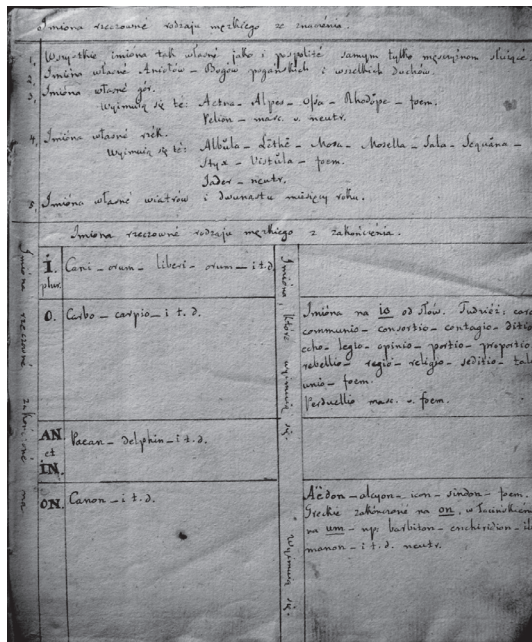 Imiona rzeczowné rodzaju męzkiego ze znaczenia.
1, Wszystkie imiona tak własné jako i pospolité samym tylko męszczyznom służące.
2, Imióna własné Aniołów – Bogów pogańskich i wszelkich duchów.
3, Imióna własné gór.
Wyimuią się té: Aetna – Alpes – Ossa – Rhodŏpe – foem.
Pelion – masc. v. neutr.
4, Imióna własné rzék.
Wyimuią się té: Albŭla – Lēthē – Mosa – Mosella – Sala – Sequăna –
Styx – Vistŭla – foem.
Jader – neutr.
5, Imióna własné wiatrów i dwunastu miesięcy roku.
Imiona rzeczowné rodzaju męzkiego z zakończenia.
Imiona rzeczowné zakończoné na
I.
plur.
Cani – orum – liberi – orum – i t. d.
Imióna które wyimuią się.
O. Carbo – carpio – i t. d.
Imióna na io od słów. Tudziéż: caro
communio – consortio – contagio – ditio
echo – legio – opinio – portio – proportio
rebellio – regio – religio – seditio –
unio – foem.
Perduellio masc. v. foem.
AN
et
IN.
Paean – delphin – i t. d.
ON. Canon – i t. d.
Wyimuią się.
Aëdon – alcyon – icon – sindon – foem.
Greckié zakończoné na on, w łacińskiém
na um – np. barbiton – enchiridion –
manon – i t. d. neutr.